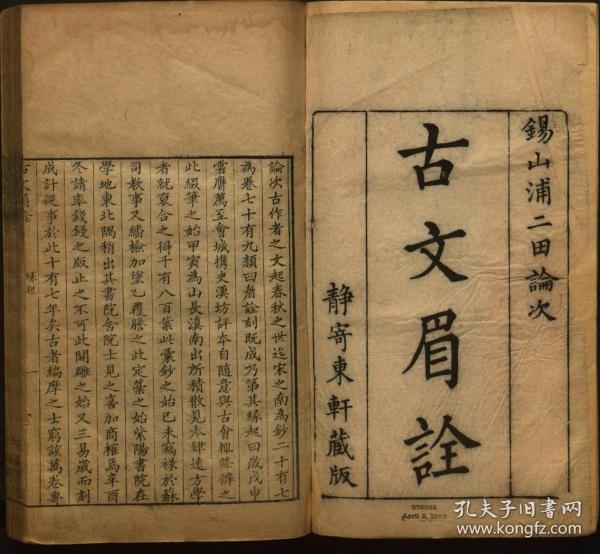 錫山浦二田論次
古文眉詮
靜寄東軒藏版
論次古作者之文起春秋之世迄宋之南為鈔二十有七
為卷七十有九顏曰眉詮刻既成乃第其緣起曰歲戊申
嘗膺薦至會城攜史漢坊評本自隨意與古會輒條辨之
此綴筆之始甲寅為山長滇南出所積散見本肆遠方學
者就裒合之得千有八百葉此彙鈔之始已未竊祿於蘇
司教事又繙檢加塗乙穫謄之此定藁之始紫陽書院在
學地東北隅稍出其書院舍院士見之喜加商榷焉辛酉
冬請率錢鋟之版止之不可此開雕之始又三易歲而刻
成計從事於此十有七年矣古者編摩之士窮該萬卷專
古文眉詮
緣起
一
879084
April 9, 19
孔夫子旧书网
www.kongfz.com